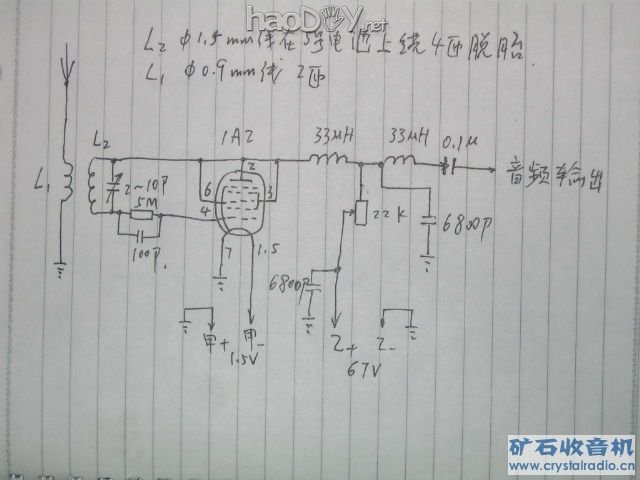 haoDIY.net
L2 φ1.5mm线在5号电池上绕4匝脱胎.
L1 φ0.9mm线 2匝
L2
1A2
33μH
33μH
0.1μ
音频输出
L1
2~10P
5M
100P.
2
6
3
4
7
1.5
22K
6800P
6800P
甲+
甲-
1.5V
Z+
Z-
67V
矿石收音机
www.crystalradio.cn